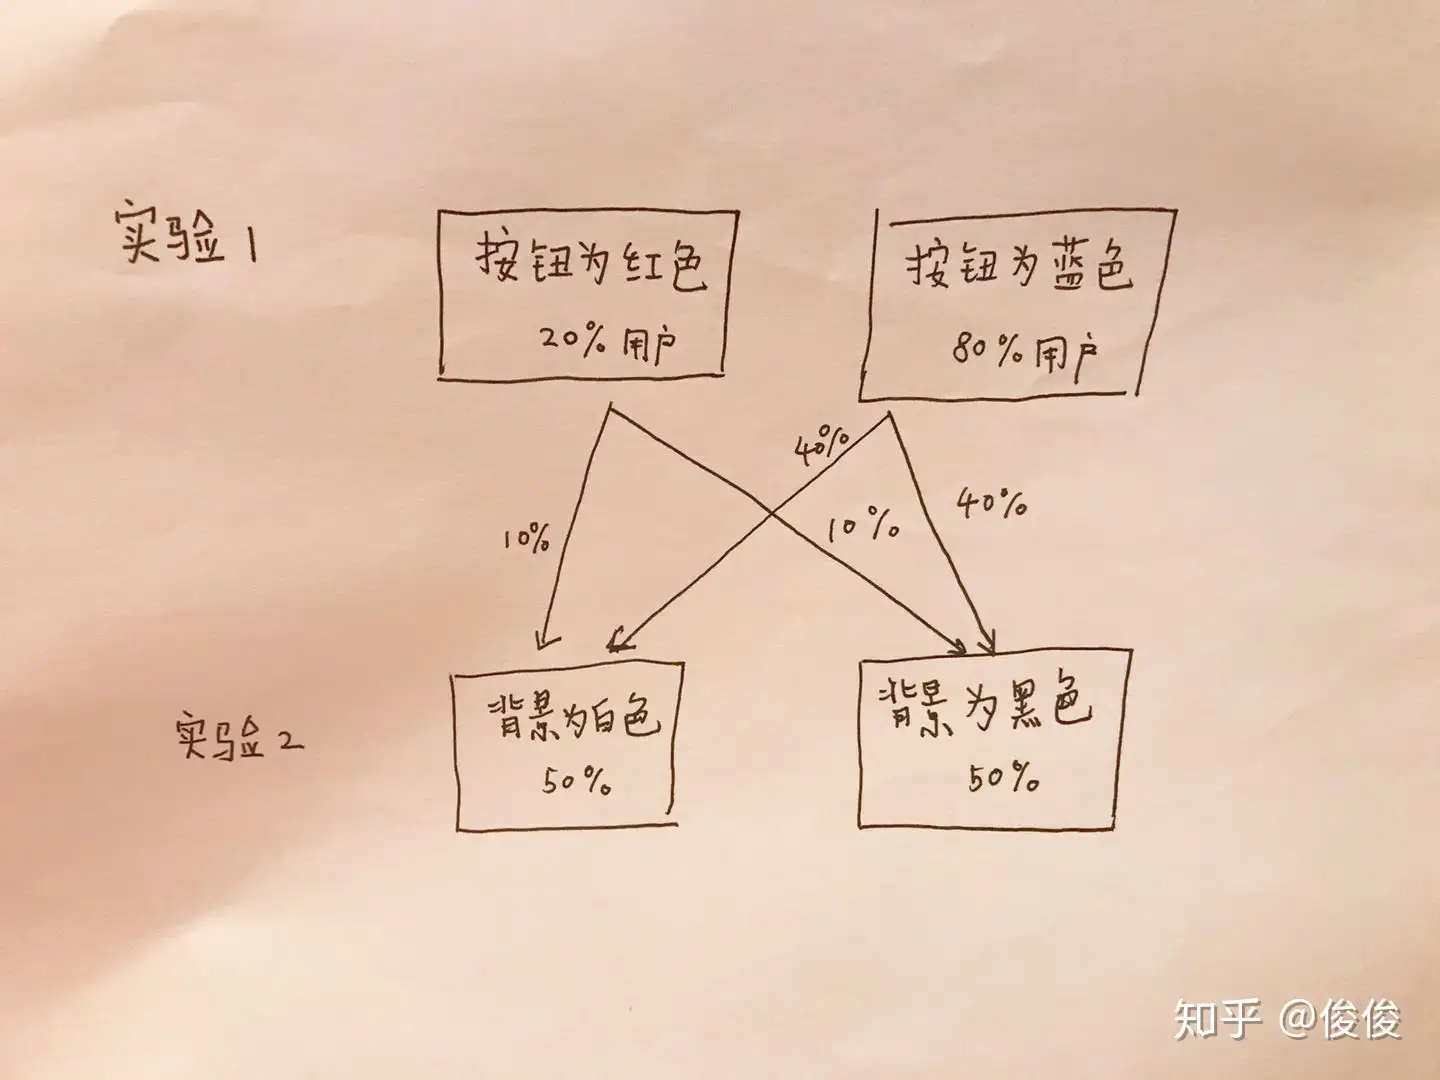 实验1
按钮为红色
20%用户
按钮为蓝色
80%用户
40%
10%
10%
40%
实验2
背景为白色
50%
背景为黑色
50%
知乎 @俊俊